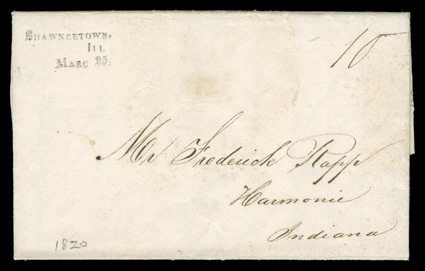 SHAWNEETOWN.
ILL
MARC 29.
10
Mr Frederick Rapp
Harmonie
Indiana
1820